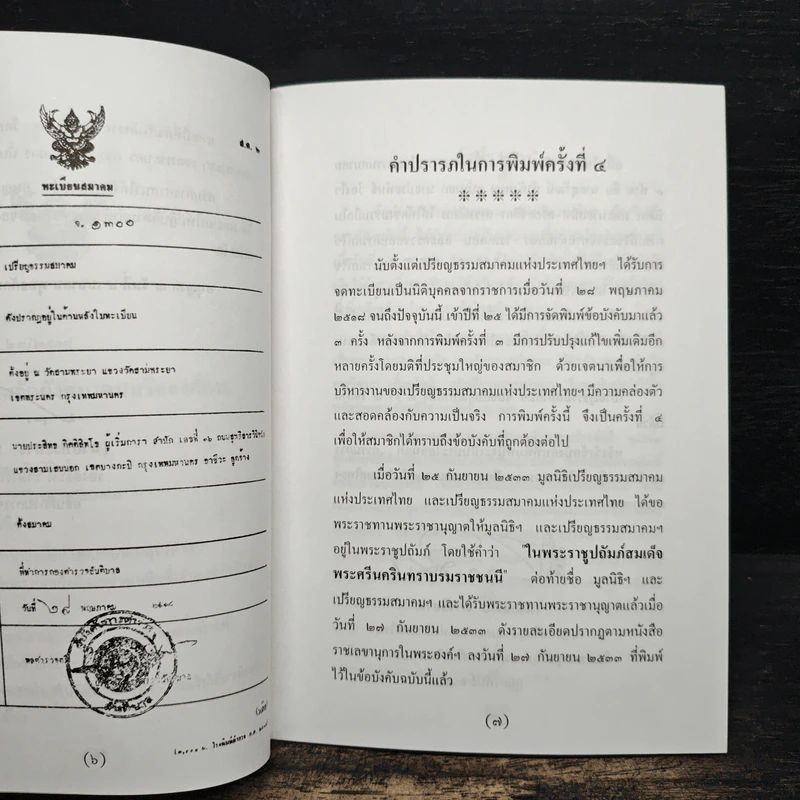 ส.ค. ๒
ทะเบียนสมาคม
จ. ๑๓๐๐
เปรียญธรรมสมาคม
ดังปรากฏอยู่ในด้านหลังใบทะเบียน
ตั้งอยู่ ณ วัดสามพระยา แขวงวัดสามพระยา
เขตพระนคร กรุงเทพมหานคร
นายประสิทธ กิตติสิทโธ ผู้เริ่มการฯ สำนัก เลขที่ ๓๖
แขวงสามเสนนอก เขตบางกะปิ กรุงเทพมหานคร อาชีวะ ลูกจ้าง
ตั้งสมาคม
ที่ทำการกองตำรวจสันติบาล
วันที่ ๒๘ พฤษภาคม ๒๕๑๘
พลตำรวจตรี
(๖)
คำปรารภในการพิมพ์ครั้งที่ ๔
นับตั้งแต่เปรียญธรรมสมาคมแห่งประเทศไทยฯ ได้รับการ
จดทะเบียนเป็นนิติบุคคลจากราชการเมื่อวันที่ ๒๘ พฤษภาคม
๒๕๑๘ จนถึงปัจจุบันนี้ เข้าปีที่ ๒๕ ได้มีการจัดพิมพ์ข้อบังคับมาแล้ว
๓ ครั้ง หลังจากการพิมพ์ครั้งที่ ๓ มีการปรับปรุงแก้ไขเพิ่มเติมอีก
หลายครั้งโดยมติที่ประชุมใหญ่ของสมาชิก ด้วยเจตนาเพื่อให้การ
บริหารงานของเปรียญธรรมสมาคมแห่งประเทศไทยฯ มีความคล่องตัว
และสอดคล้องกับความเป็นจริง การพิมพ์ครั้งนี้ จึงเป็นครั้งที่ ๔
เพื่อให้สมาชิกได้ทราบถึงข้อบังคับที่ถูกต้องต่อไป
เมื่อวันที่ ๒๕ กันยายน ๒๕๓๓ มูลนิธิเปรียญธรรมสมาคม
แห่งประเทศไทย และเปรียญธรรมสมาคมแห่งประเทศไทย ได้ขอ
พระราชทานพระราชานุญาตให้มูลนิธิฯ และเปรียญธรรมสมาคมฯ
อยู่ในพระราชูปถัมภ์ โดยใช้คำว่า "ในพระราชูปถัมภ์สมเด็จ
พระศรีนครินทราบรมราชชนนี" ต่อท้ายชื่อ มูลนิธิฯ และ
เปรียญธรรมสมาคมฯ และได้รับพระราชทานพระราชานุญาตแล้วเมื่อ
วันที่ ๒๗ กันยายน ๒๕๓๓ ดังรายละเอียดปรากฏตามหนังสือ
ราชเลขานุการในพระองค์ฯ ลงวันที่ ๒๗ กันยายน ๒๕๓๓ ที่พิมพ์
ไว้ในข้อบังคับฉบับนี้แล้ว
(๗)